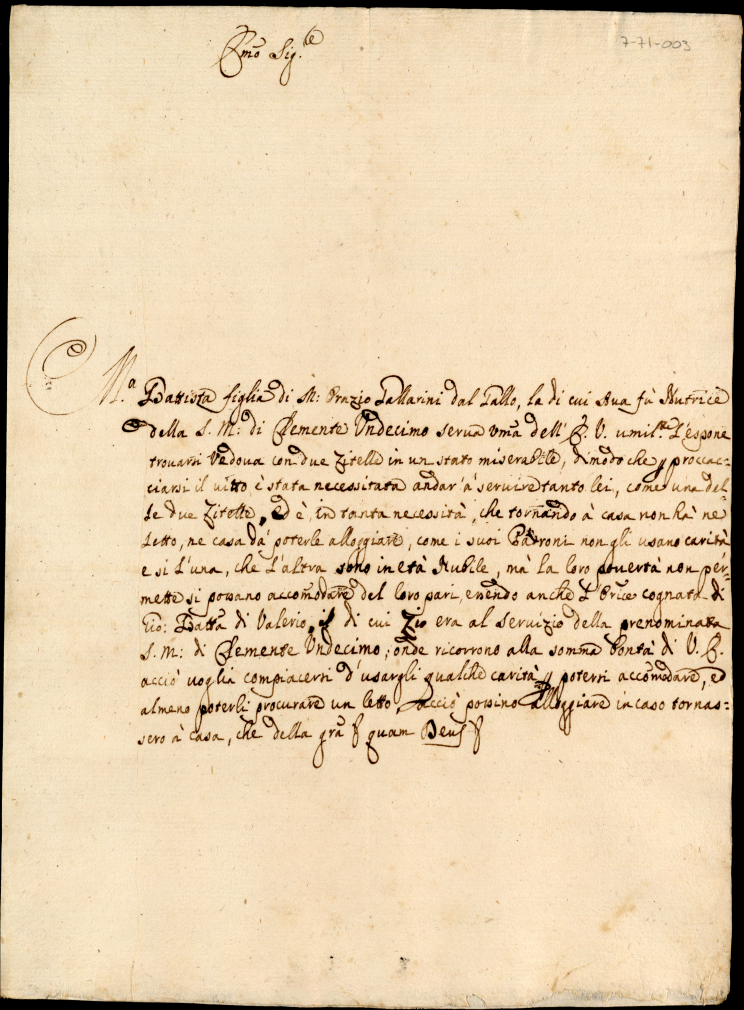 Em̃o Sig.re
7-71-003
M.a Battista figlia di M: Orazio Tallarini dal Tallo, la di cui Ava fù Nutrice
della S. M: di Clemente Undecimo serva Um̃a dell' E. V. umil.te L'espone
trovarsi Vedova con due Zitelle in un stato miserabile, di modo che p procac=
ciarsi il vitto è stata necessitata andar' à servire tanto lei, come una del=
le due Zitelle, ed è in tanta necessità, che tornando à casa non hà ne
letto, ne casa dà poterle alloggiare, come i suoi Padroni non gli usano carità
e si l'una, che l'altra sono in età Nubile, mà la loro povertà non per=
mette si possano accom̃odare del loro pari, essendo anche l'Or̃ice cognata di
Gio: Batt̃a di Valerio, il di cui Zio era al servizio della prenominata
S. M: di Clemente Undecimo; onde ricorrono alla som̃a bontà di V. E.
acciò voglia compiacersi d'usargli qualche carità p potersi accom̃odare, ed
almeno poterli procurare un letto, acciò possino alloggiare in caso tornas=
sero à casa, che della grã quam Deus